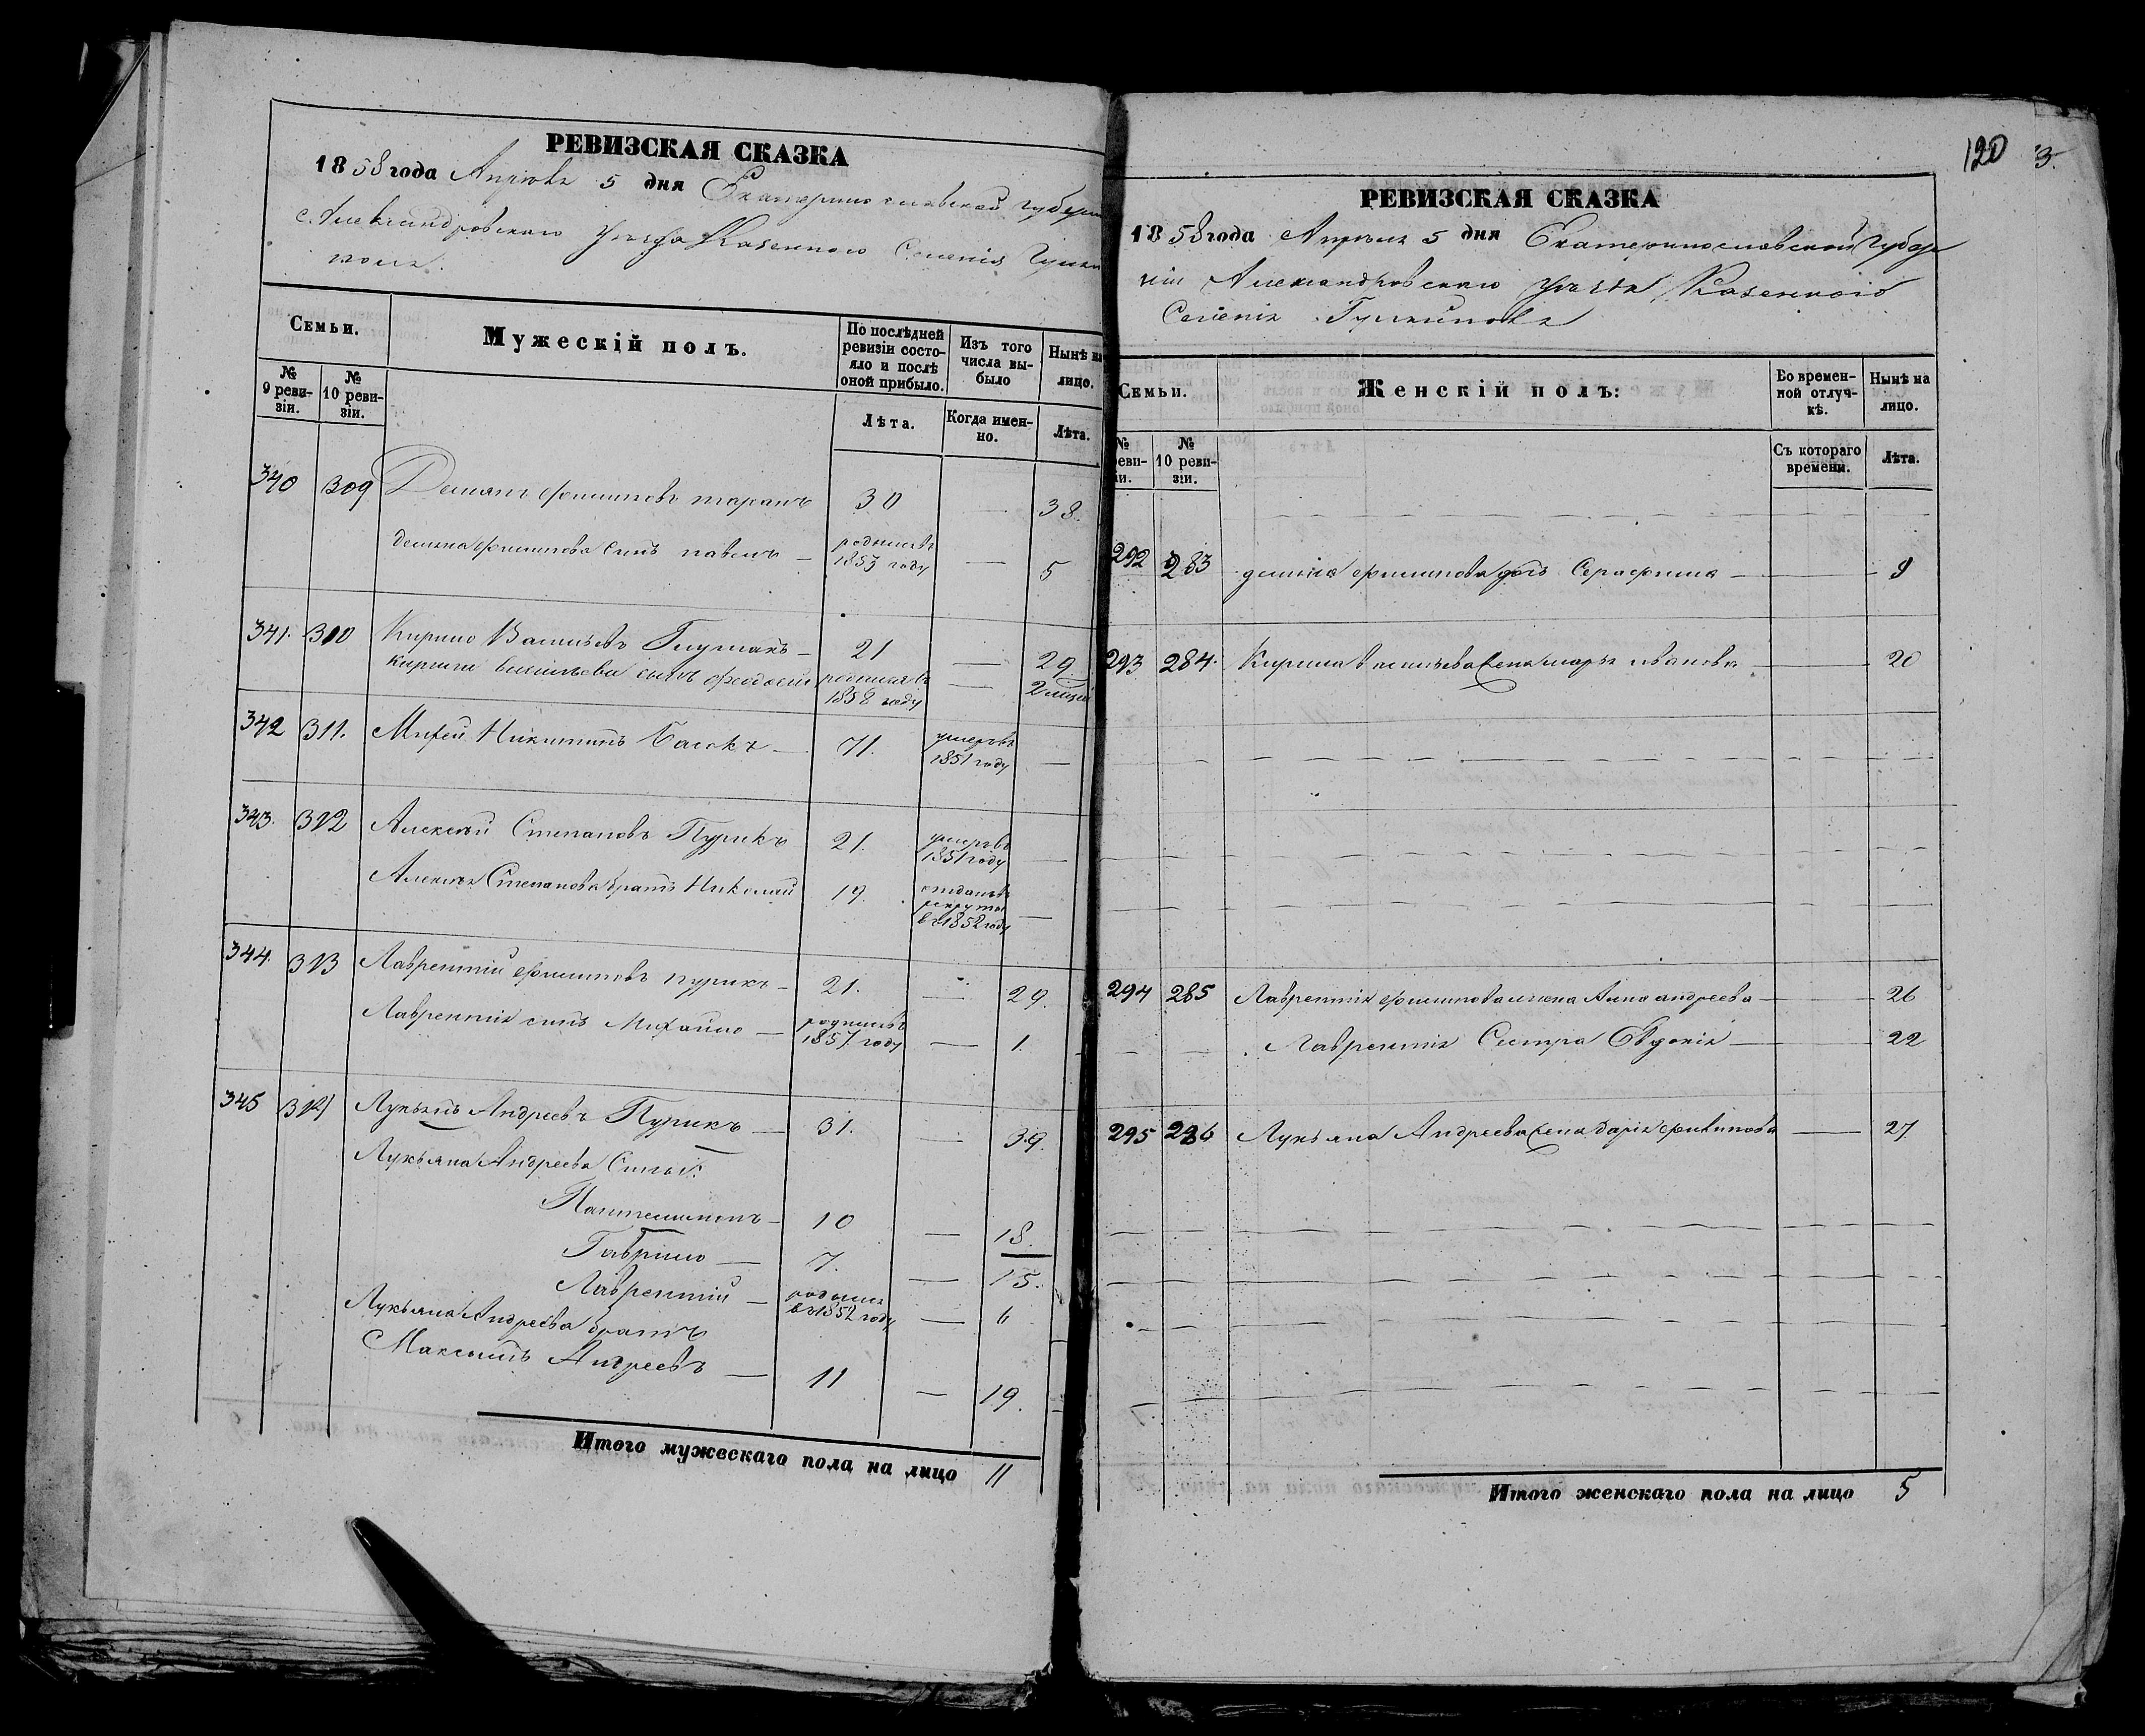 РЕВИЗСКАЯ СКАЗКА
1858 года Апреля 5 дня Екатеринославской губерн
Александровскаго уезда Казенного Селения
Семьи.
Мужескій полъ.
По послѣдней ревизіи состояло и послѣ оной прибыло.
Изъ того числа выбыло
Нынѣ на лицо.
№ 9 ревизіи.
№ 10 ревизіи.
Лѣта.
Когда именно.
Лѣта.
340 309 Демиян Филиппов таранъ 30 — 38.
демяна филиппова сынъ павелъ — родился в 1853 году — 5
341. 310 Кирило Васильевъ Глушакъ — 21 — 29
кирила васильева сынъ феодосий родился въ 1858 году — 2 месяц
342 311. Михей Никитинъ Басокъ — 71. умеръ въ 1851 году —
343. 312 Алексей Степановъ Пурикъ 21. умеръ въ 1851 году —
Алексея Степанова братъ Николай 19. отданъ в рекруты въ 1852 году —
344. 313 Лаврентий филипповъ пурикъ — 21. — 29.
Лаврентия сынъ Михайло — родился в 1857 году — 1.
345 314 Лукьянъ Андреевъ Пурикъ — 31. — 39.
Лукьяна Андреева Сыновя:
Пантелимонъ — 10 — 18.
Гаврило — 7. — 15.
Лаврентий — родился въ 1852 году — 6
Лукьяна Андреева братъ
Максимъ Андреевъ — 11 — 19.
Итого мужескаго пола на лицо 11
120
3.
РЕВИЗСКАЯ СКАЗКА
1858 года Апреля 5 дня Екатеринославской Губер
нии Александровскаго уезда Казенного
Селения Гуляйполя
Семьи.
Женскій полъ:
Во временной отлучкѣ.
Нынѣ на лицо.
№ реви- іи.
№ 10 ревизіи.
Съ котораго времени.
Лѣта.
292 283 демяна филиппова дочь Серафима — — 9
293 284. Кирила васильева жена марья иванова — 20
294 285 Лаврентия филиппова жена Анна андреева — — 26
Лаврентия Сестра Евдокия — — 22
295 286 Лукьяна Андреева жена дария филипова — 27
Итого женскаго пола на лицо 5